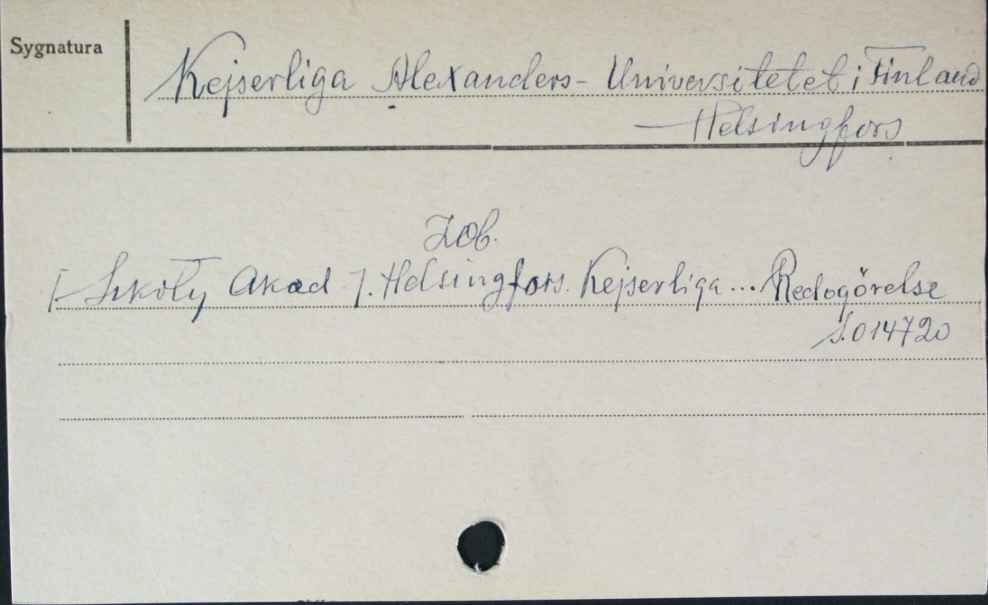 Sygnatura
Kejserliga Alexanders-Universitetet i Finland
— Helsingfors
Zob.
[Szkoły Akad]. Helsingfors. Kejserliga... Redogörelse
S.014720